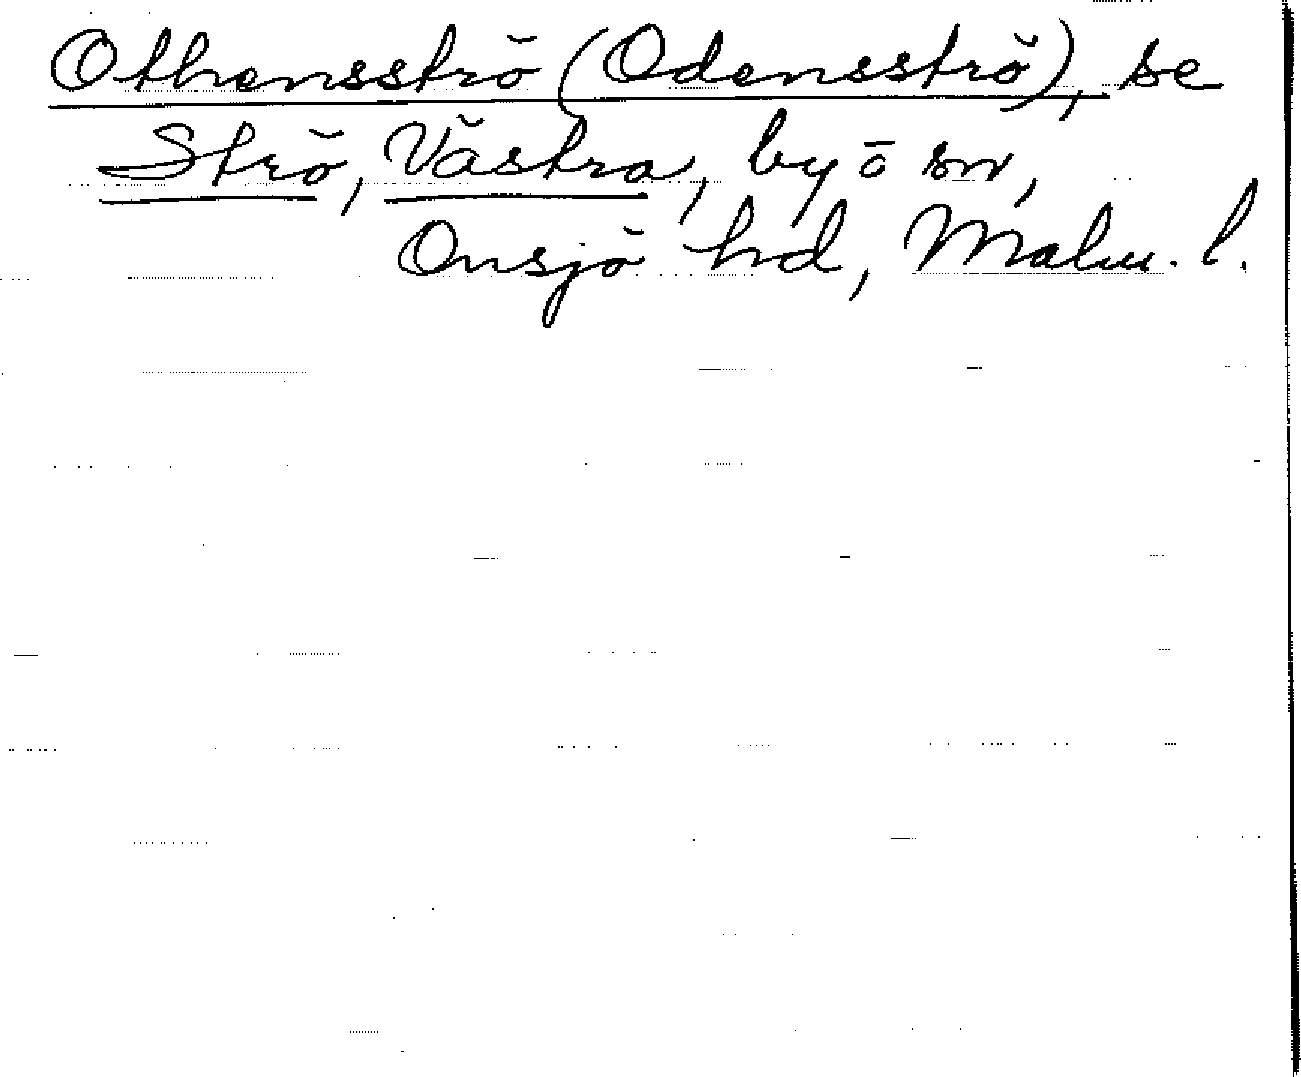 Othensströ (Odensströ), se
Strö, Västra, by ō sn,
Onsjö hd, Malm. l.